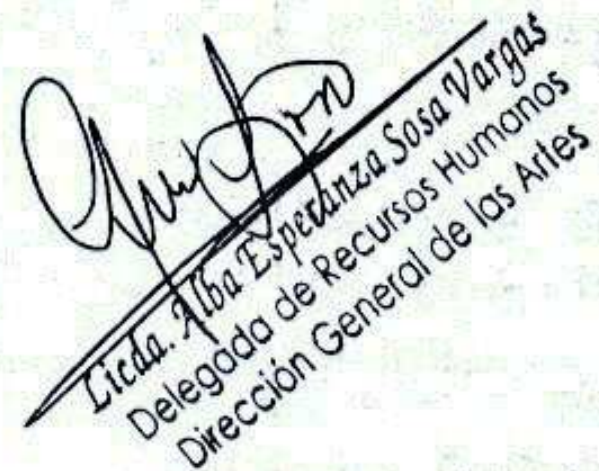 Licda. Alba Esperanza Sosa Vargas
Delegada de Recursos Humanos
Dirección General de las Artes